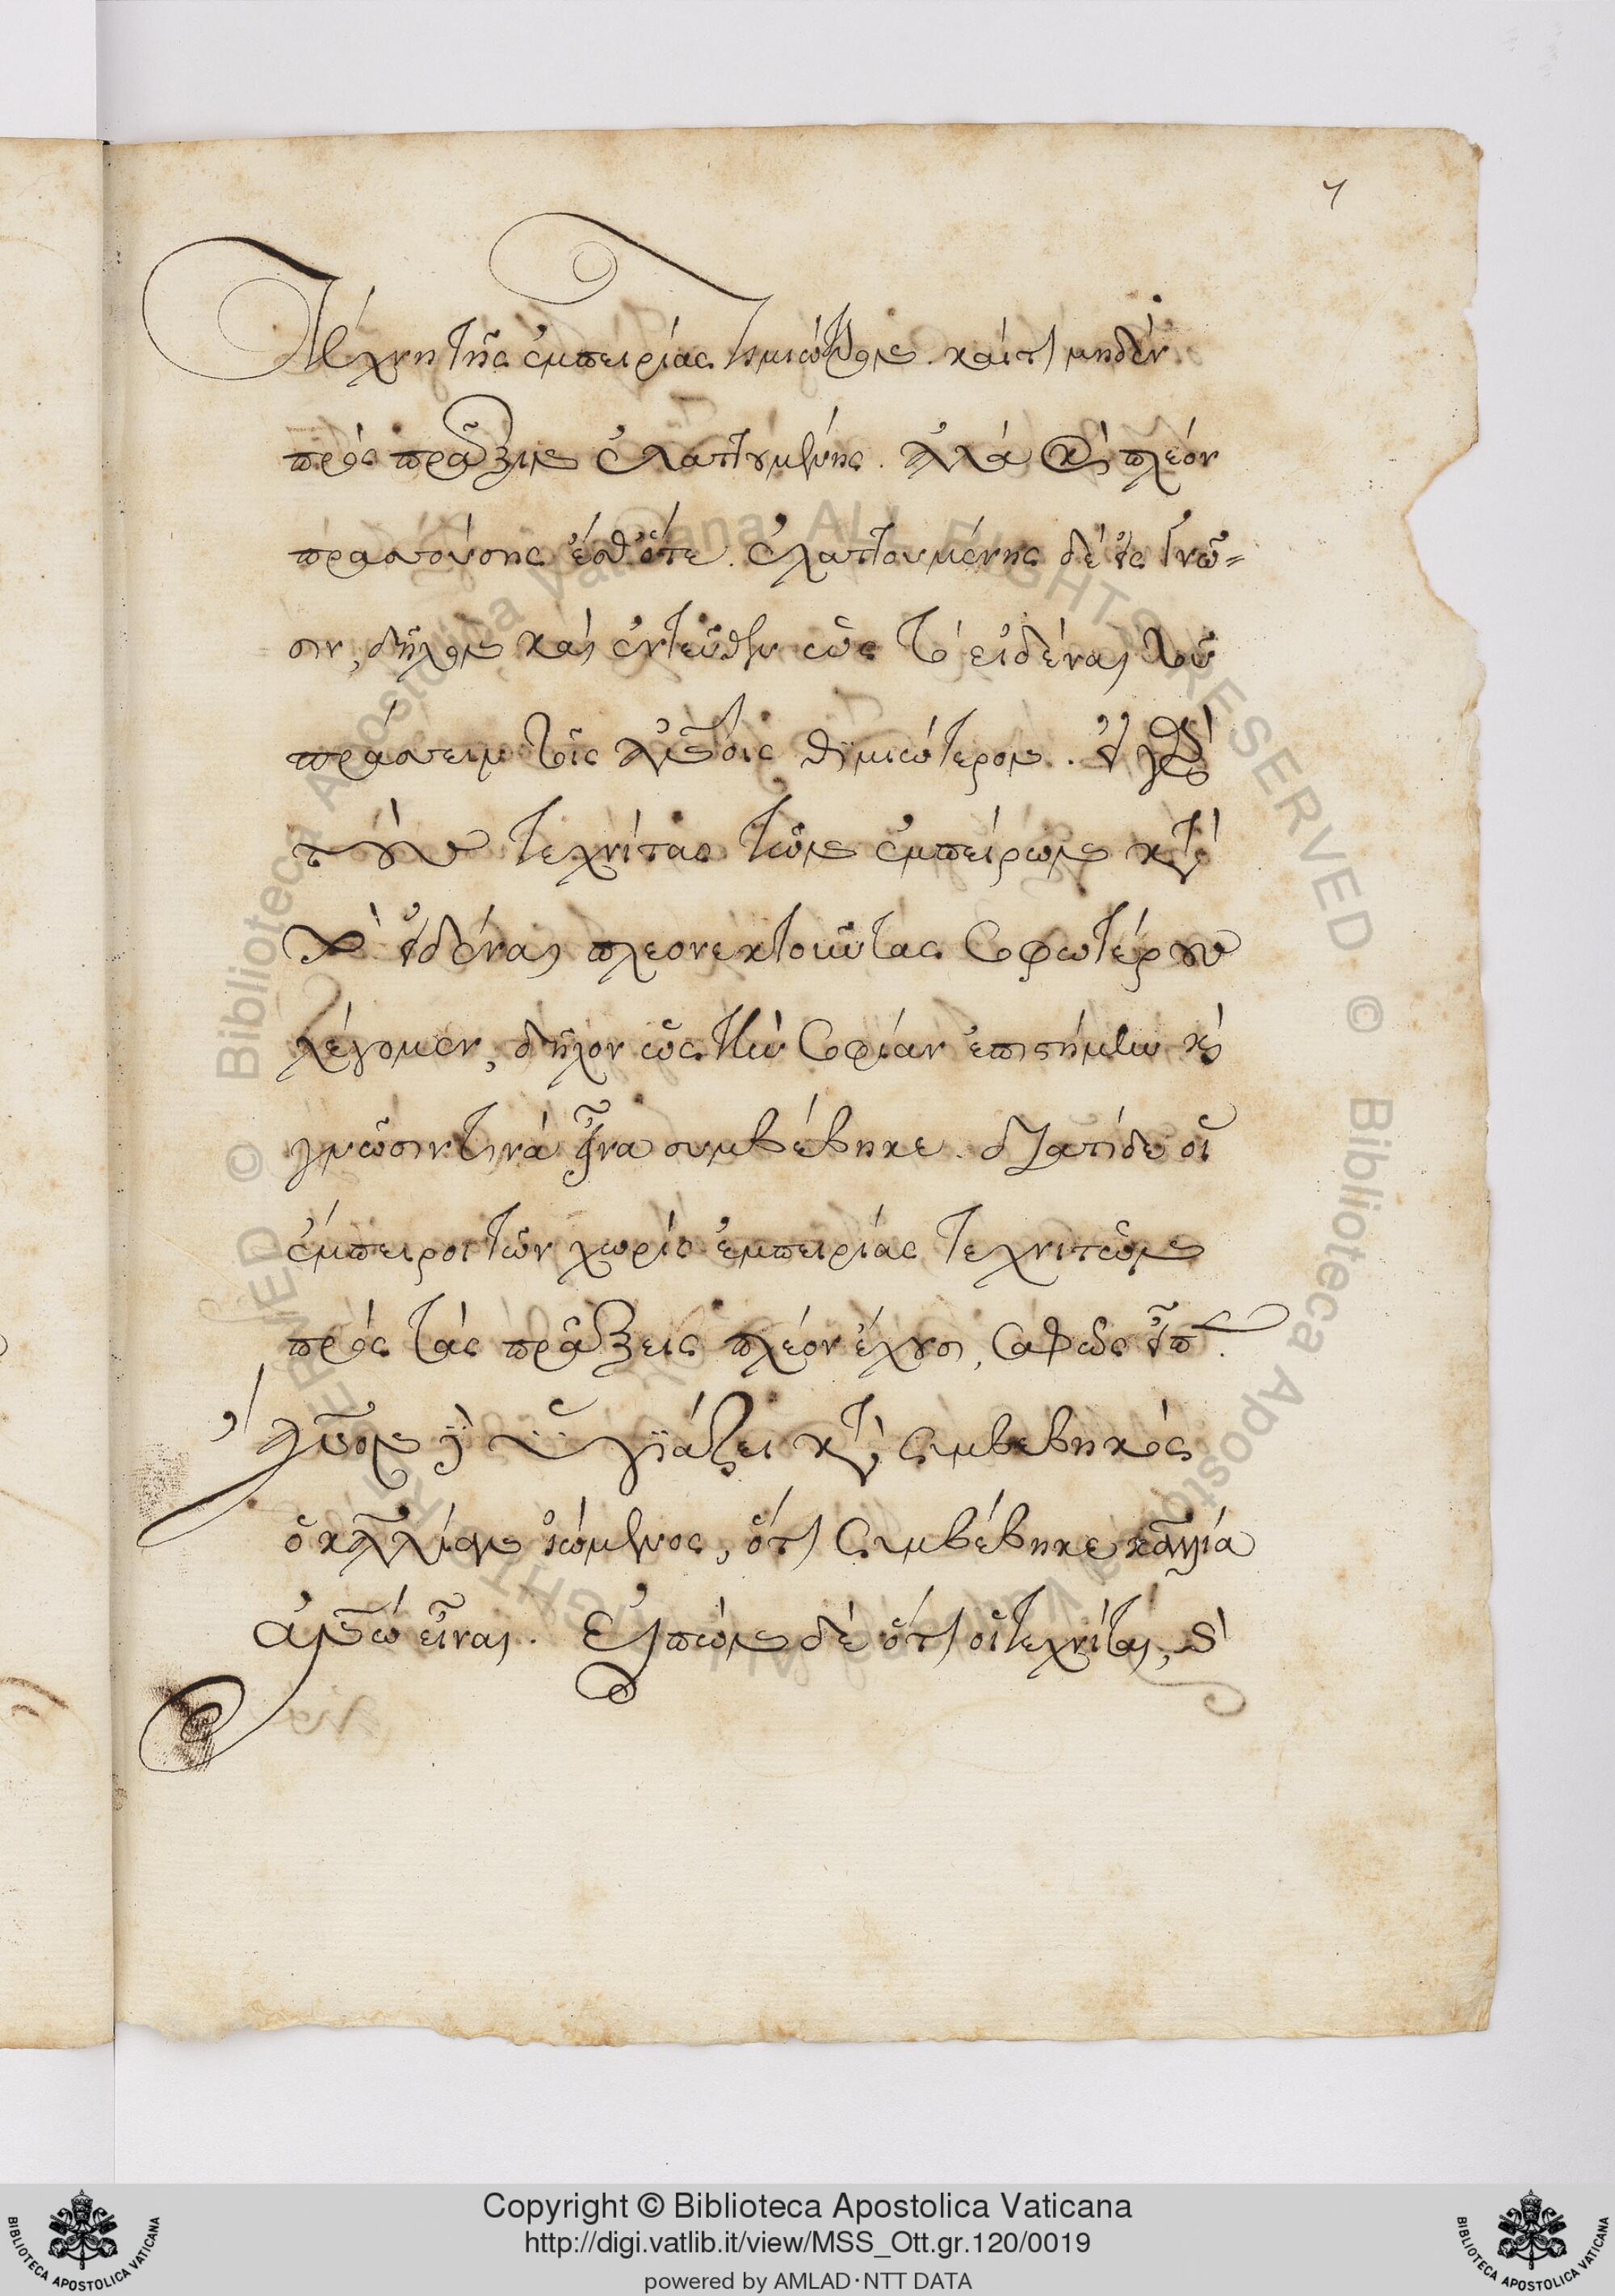 7
τέχνη τῆς ἐμπειρίας τιμιώτερον. καίτι μηδὲν
πρὸς πρᾶξιν ἐλαττουμένης. ἀλλὰ καὶ πλέον
πραττούσης ἔσθ' ὅτε. ἐλαττουμένης δὲ εἰς γνῶ=
σιν, δῆλον καὶ ἐντεῦθεν ὡς τὸ εἰδέναι τοῦ
πράττειν τοῖς
τιμιώτερον. εἰ γὰρ
τοὺς τεχνίτας τῶν ἐμπείρων κατὰ
τὸ εἰδέναι πλεονεκτοῦντας σοφωτέρους
λέγομεν, δῆλον ὡς τὴν σοφίαν ἐπιστήμην καὶ
γνῶσιν τινὰ εἶναι συμβέβηκε. διατί δὲ οἱ
ἔμπειροι τῶν χωρὶς ἐμπειρίας τεχνιτῶν
πρὸς τὰς πράξεις πλέον ἔχουσι, σαφῶς εἶπε.
ὑγιάζει κατὰ συμβεβηκὸς
ὁ καλλίαν ἰώμενος, ὅτι συμβέβηκε καλλία
ἀνθρώπω εἶναι. Εἰπὼν δὲ ὅτι οἱ τεχνῖται,
Copyright © Biblioteca Apostolica Vaticana
http://digi.vatlib.it/view/MSS_Ott.gr.120/0019
powered by AMLAD·NTT DATA
BIBLIOTECA APOSTOLICA VATICANA
BIBLIOTECA APOSTOLICA VATICANA
© Biblioteca Apostolica Vaticana ALL RIGHTS RESERVED © Biblioteca Apostolica Vaticana ALL RIGHTS RESERVED